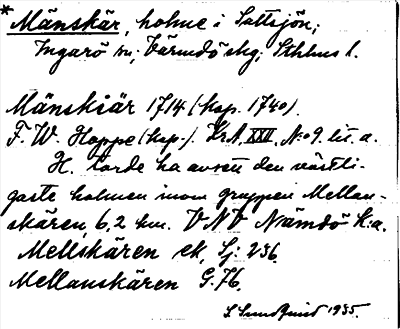 *Mänskär, holme i Saltsjön;
Ingarö sn; Värmdö skg; Sthlms l.
Mänskiär 1714 (kop. 1740).
F. W. Hoppe (kop.). KrA, XXII, N:o 9. lit. a.
H. torde ha avsett den västli-
gaste holmen inom gruppen Mellan-
skären, 6,2 km. VNV Nämdö K:a.
Mellskären ek, Sj: 236.
Mellanskären G.76.
S Sundquist 1935.